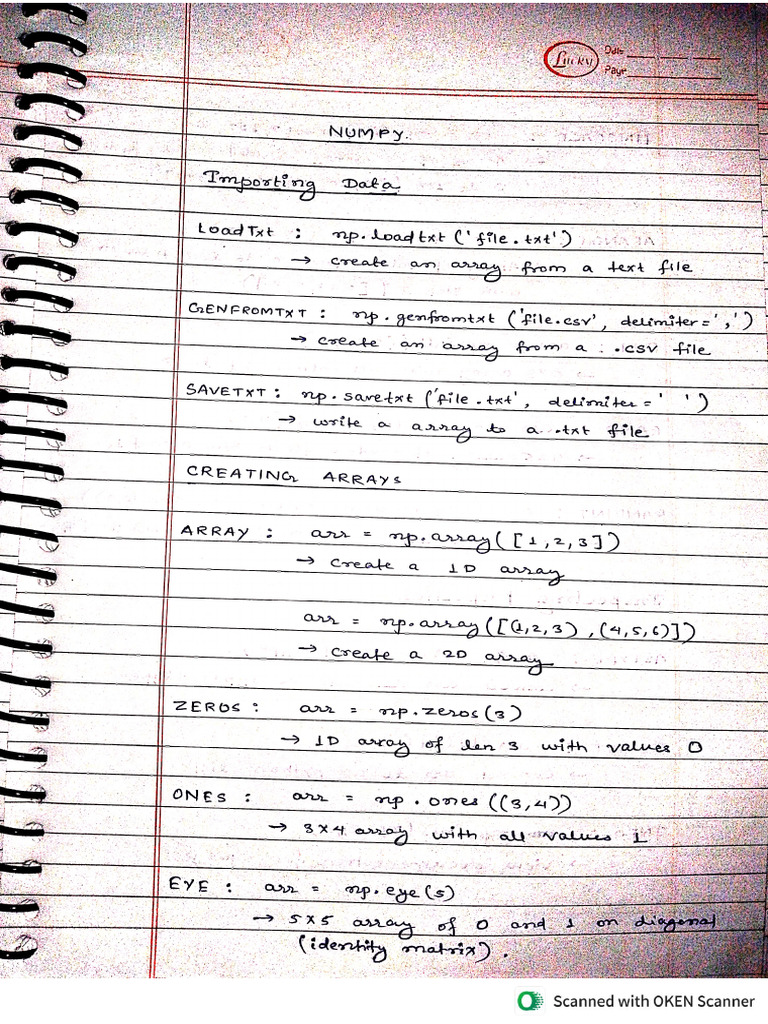 Lucky
Date
Page
NUMPY.
Importing Data
LoadTxt : np.loadtxt ('file.txt')
→ create an array from a text file
GENFROMTXT : np.genfromtxt ('file.csv', delimiter=',')
→ create an array from a .csv file
SAVETXT : np.savetxt ('file.txt', delimiter=' ')
→ write a array to a .txt file
CREATING ARRAYS
ARRAY : arr = np.array([1,2,3])
→ create a 1D array
arr = np.array([(1,2,3),(4,5,6)])
→ create a 2D array
ZEROS : arr = np.zeros(3)
→ 1D array of len 3 with values 0
ONES : arr = np.ones((3,4))
→ 3x4 array with all values 1
EYE : arr = np.eye(5)
→ 5x5 array of 0 and 1 on diagonal
(identity matrix).
Scanned with OKEN Scanner